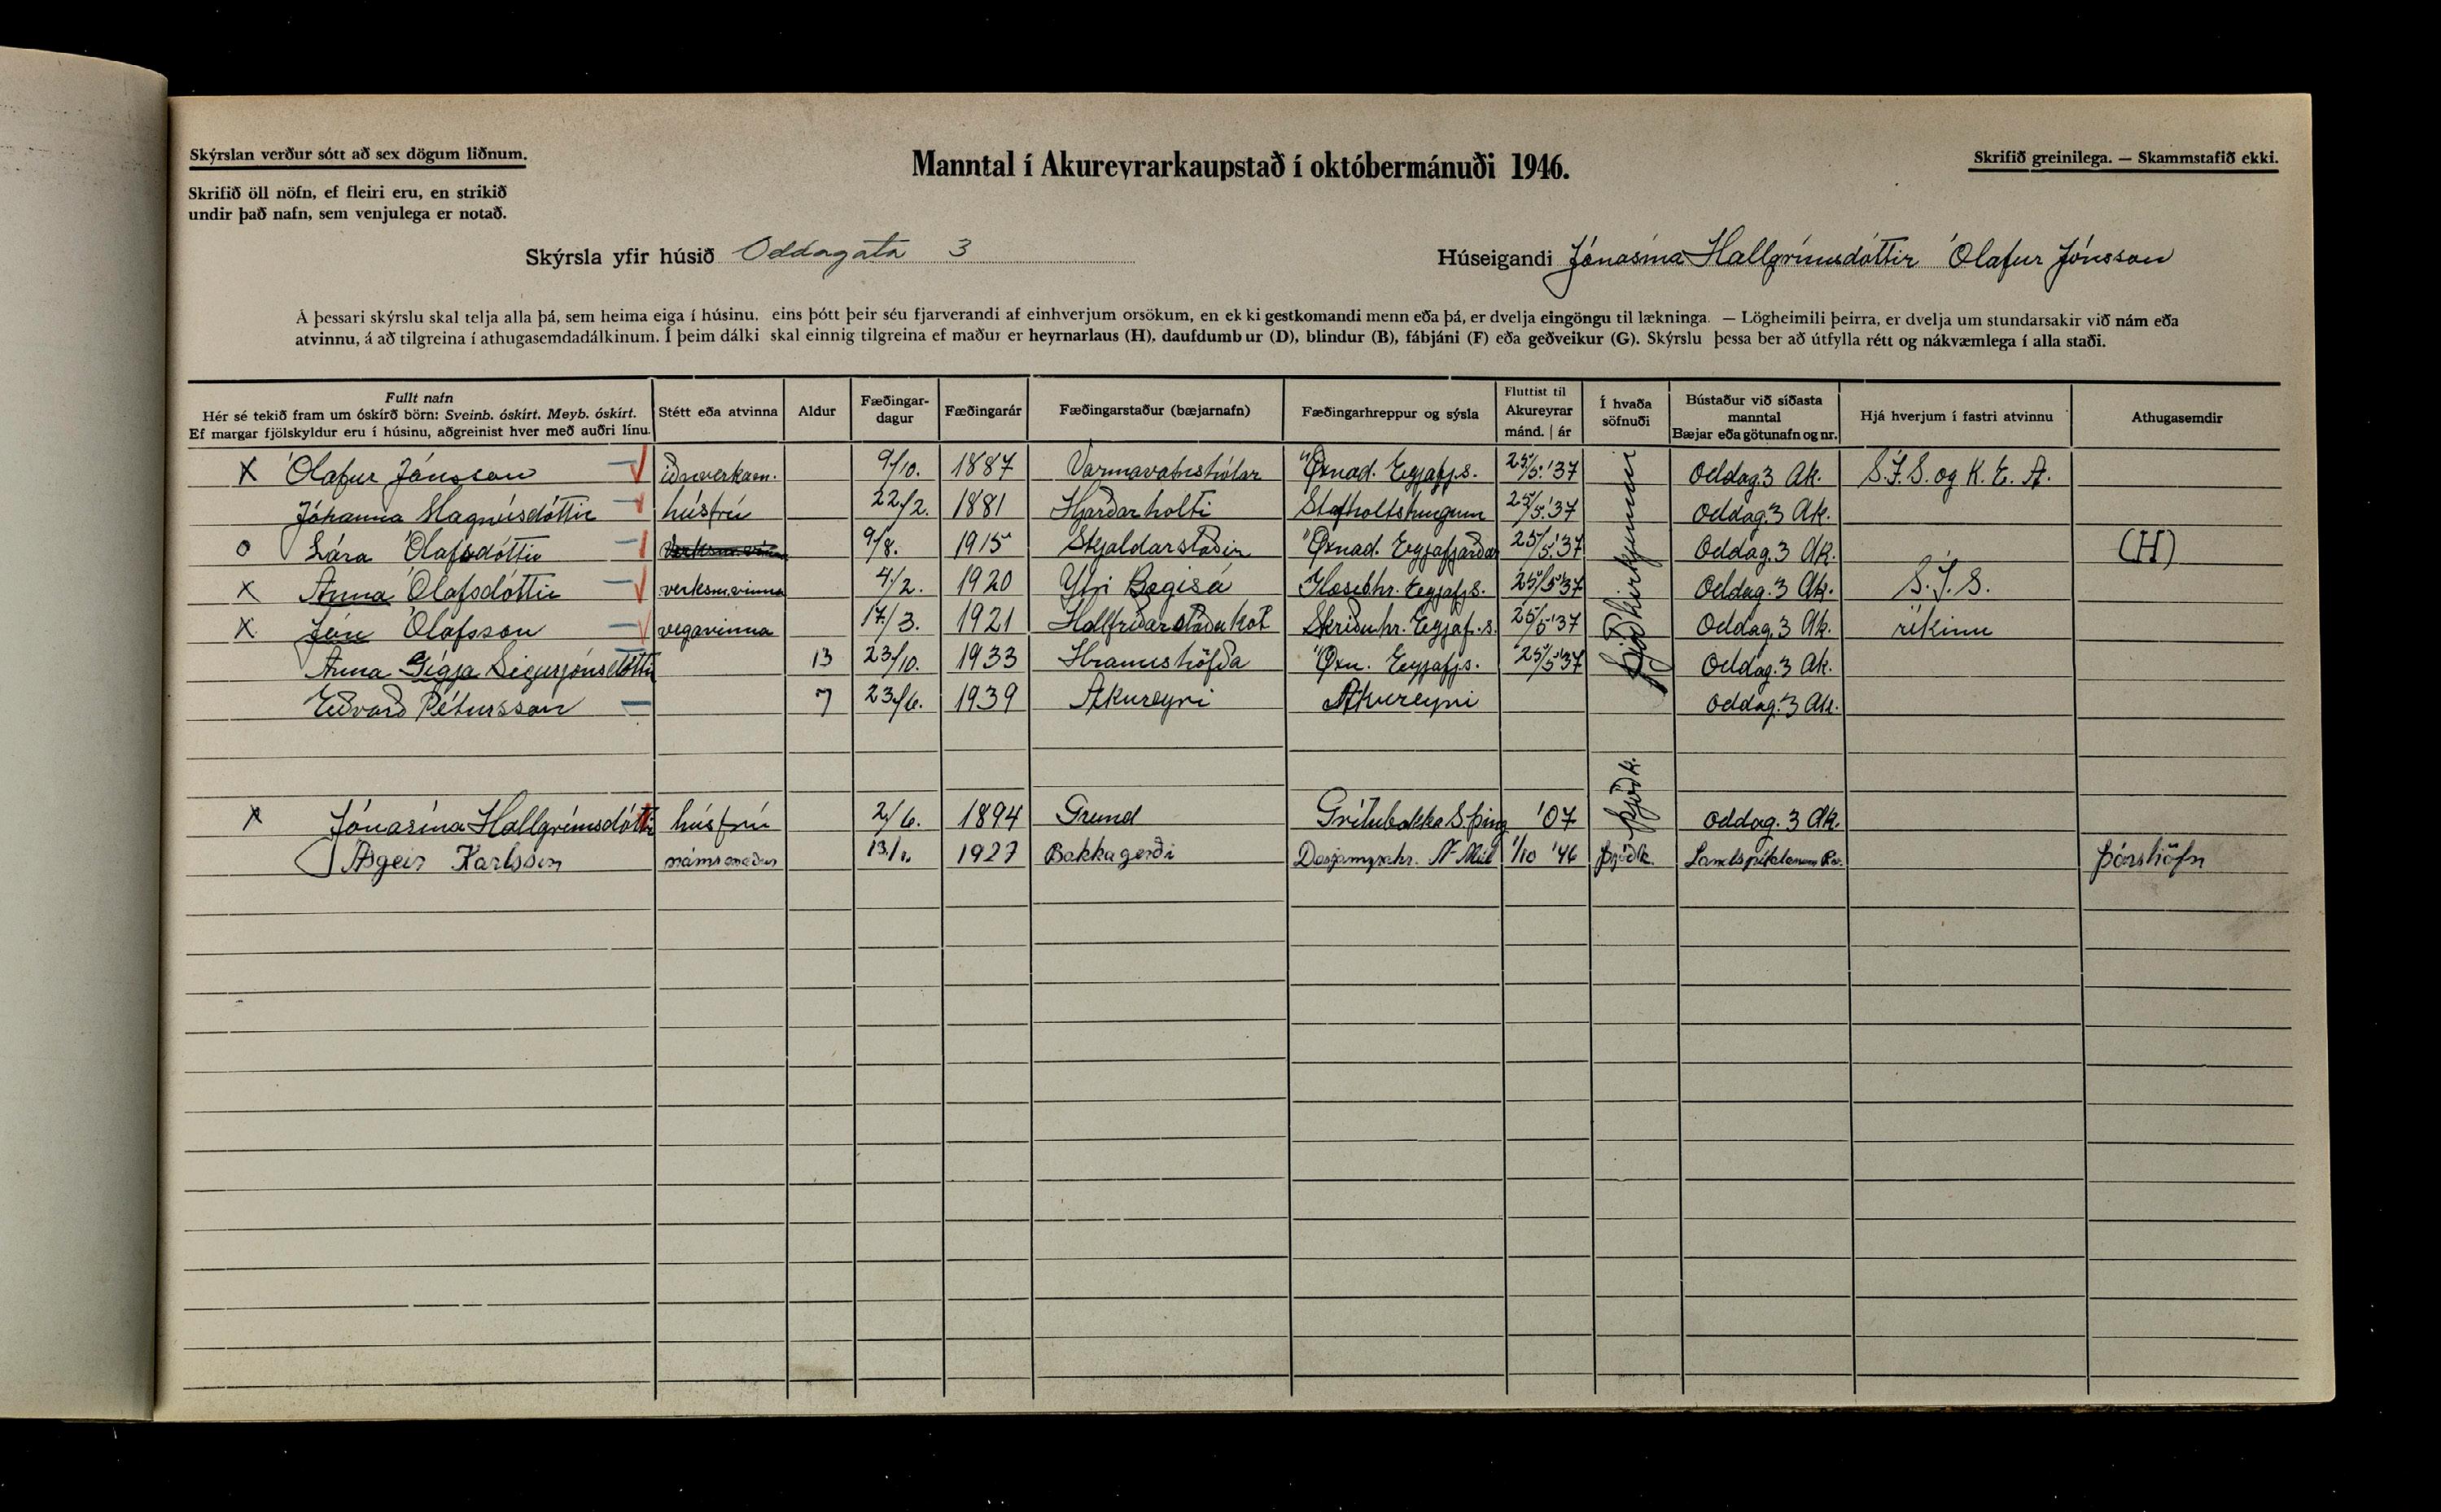 Skýrslan verður sótt að sex dögum liðnum.
Manntal í Akureyrarkaupstað í októbermánuði 1946.
Skrifið greinilega. — Skammstafið ekki.
Skrifið öll nöfn, ef fleiri eru, en strikið
undir það nafn, sem venjulega er notað.
Skýrsla yfir húsið Oddagata 3
Húseigandi Jónasína Hallgrímsdóttir Ólafur Jónsson
Á þessari skýrslu skal telja alla þá, sem heima eiga í húsinu, eins þótt þeir séu fjarverandi af einhverjum orsökum, en ekki gestkomandi menn eða þá, er dvelja eingöngu til lækninga. — Lögheimili þeirra, er dvelja um stundarsakir við nám eða
atvinnu, á að tilgreina í athugasemdadálkinum. Í þeim dálki skal einnig tilgreina ef maður er heyrnarlaus (H), daufdumbur (D), blindur (B), fábjáni (F) eða geðveikur (G). Skýrslu þessa ber að útfylla rétt og nákvæmlega í alla staði.
Fullt nafn
Hér sé tekið fram um óskírð börn: Sveinb. óskírt. Meyb. óskírt.
Ef margar fjölskyldur eru í húsinu, aðgreinist hver með auðri línu.
Stétt eða atvinna
Aldur
Fæðingar-
dagur
Fæðingarár
Fæðingarstaður (bæjarnafn)
Fæðingarhreppur og sýsla
Fluttist til
Akureyrar
mánd. | ár
Í hvaða
söfnuði
Bústaður við síðasta
manntal
Bæjar eða götunafn og nr.
Hjá hverjum í fastri atvinnu
Athugasemdir
X Ólafur Jónsson iðnverkam. 9/10. 1887 Varmavatnshólar Öxnad. Eyjafj.s. 25/5.'37 Oddag.3 Ak. S.Í.S. og K.E.A.
Jóhanna Magnúsdóttir húsfrú 22/2. 1881 Hjarðarholti Stafholtstungum 25/5.'37 Oddag.3 Ak.
o Lára Ólafsdóttir 9/8. 1915 Skjaldarstaðir Öxnad. Eyjafjarðar 25/5.'37 Oddag.3 Ak. (H)
X Anna Ólafsdóttir verksm.vinna 4/2. 1920 Ytri Bægisá Glæsibhr. Eyjafj.s. 25/5'37 Oddag.3 Ak. S.Í.S.
X Jón Ólafsson vegavinna 17/3. 1921 Hallfríðarstaðakot Skriðuhr. Eyjaf.s. 25/5'37 Oddag.3 Ak. ríkinu
Anna Gígja Sigurjónsdóttir 13 23/10. 1933 Hraunshöfða Öxn. Eyjafj.s. 25/5'37 Oddag.3 Ak.
Eðvarð Pétursson 7 23/6. 1939 Akureyri Akureyri Oddag.3 Ak.
þjóðkirkjunni
X Jónasína Hallgrímsdóttir húsfrú 2/6. 1894 Grund Grítubakka S.þing '07 þjóðk. Oddag. 3 Ak.
Ásgeir Karlsson námsmaður 13/1. 1927 Bakkagerði N-Múl 1/10 '46 þjóðk. Landspítalanum Rv. Þórshöfn